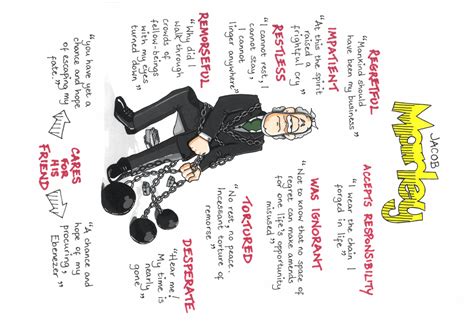 JACOB
Marley
REGRETFUL
"Mankind should
have been my
business"
IMPATIENT
"At this the spirit
raised a
frightful cry"
RESTLESS
"I cannot rest, I
cannot stay, I
cannot
linger anywhere"
REMORSEFUL
"Why did I
walk through
crowds of
fellow-beings
with my eyes
turned down"
ACCEPTS RESPONSIBILTY
"I wear the chain I
forged in life"
WAS IGNORANT
"Not to know that no space of
regret can make amends
for one life's opportunity
misused"
TORTURED
"No rest, no peace.
Incessant torture of
remorse"
DESPERATE
"Hear me!
My time is
nearly
gone"
"you have yet a
chance and hope
of escaping my
fate."
CARES
FOR
HIS
FRIEND
"A chance and
hope of my
procuring,
Ebenezer"